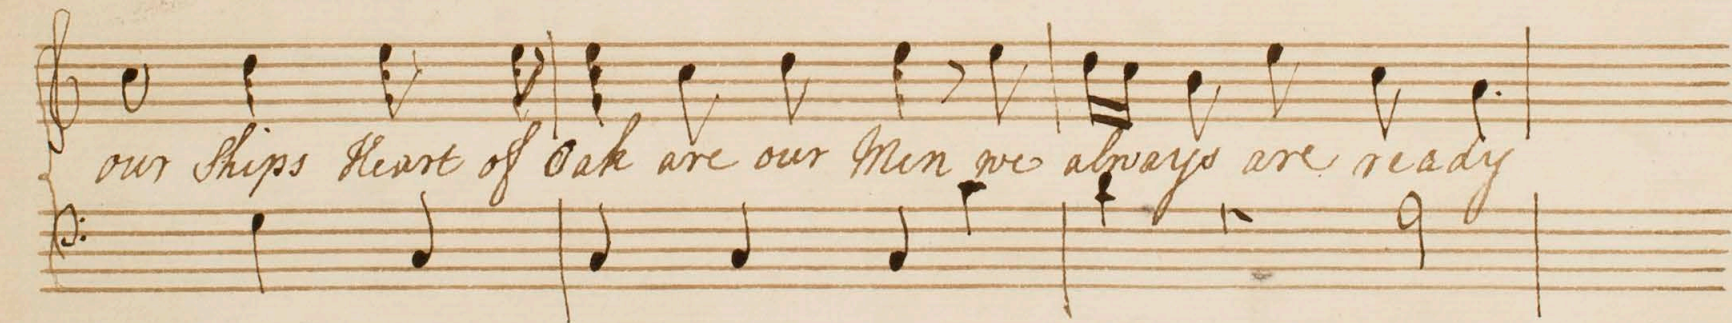 our Ships Heart of Oak are our Men we always are ready